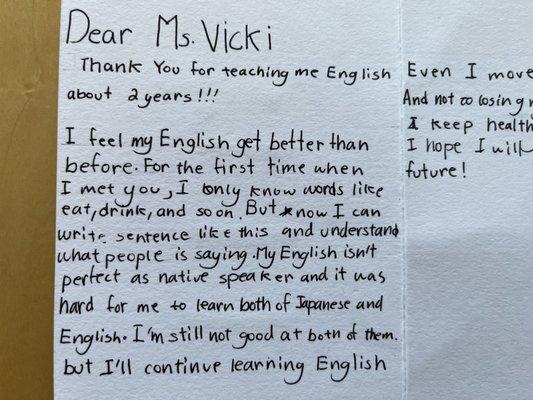 Dear Ms. Vicki
Thank You for teaching me English
about 2 years!!!
I feel my English get better than
before. For the first time when
I met you, I only know words like
eat, drink, and so on. But now I can
write sentence like this and understand
what people is saying. My English isn't
perfect as native speaker and it was
hard for me to learn both of Japanese and
English. I'm still not good at both of them.
but I'll continue learning English
Even I move
And not losing
I keep health
I hope I will
future!